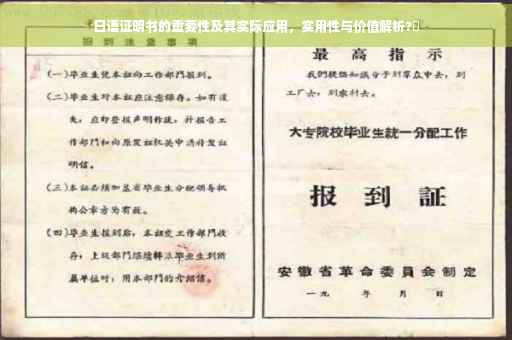 日语证明书的重要性及其实际应用，实用性与价值解析?
报到注意事项
(一)毕业生凭本证向工作部门报到。
(二)毕业生对本证应注意保存。如有遗
失，应即登报声明作废，并报告工
作部门和向原发证机关申请补发证
明信。
(三)本证必须加盖省毕业生分配领导机
构公章方为有效。
(四)毕业生报到后，本证交工作部门收
存；上级部门继续转派毕业生到所
属单位时，用本部门的介绍信。
最高指示
我们提倡知识分子到群众中去，到
工厂去，到农村去。
大专院校毕业生統一分配工作
报到証
安徽省革命委員会制定
一九 年 月 日